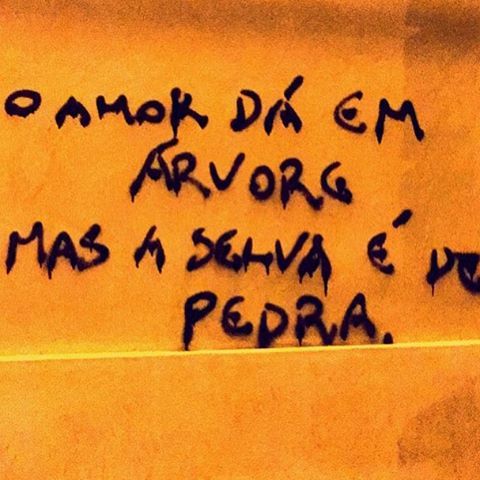 O AMOR DÁ EM
ÁRVORE
MAS A SELVA É DE
PEDRA.